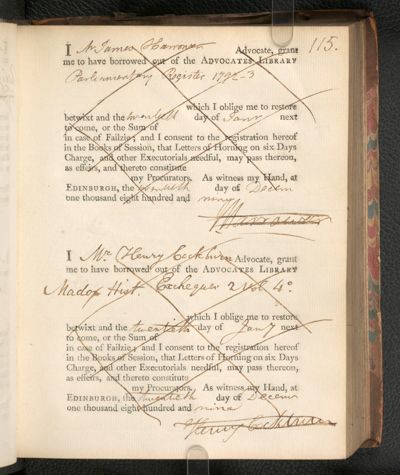 115.
I Mr James Advocate, grant
me to have borrowed out of the ADVOCATES LIBRARY
Parliamentary Register 1792-3
which I oblige me to restore
betwixt and the twentieth day of Jany next
to come, or the Sum of
in case of Failzie; and I consent to the registration hereof
in the Books of Session, that Letters of Horning on six Days
Charge, and other Executorials needful, may pass thereon,
as effeirs, and thereto constitute
my Procurators. As witness my Hand, at
EDINBURGH, the twentieth day of Decem
one thousand eight hundred and nine
I Mr. Henry Cockburn Advocate, grant
me to have borrowed out of the ADVOCATES LIBRARY
Madox Hist. Exchequer 2 Vol 4o.
which I oblige me to restore
betwixt and the twentieth day of Jany next
to come, or the Sum of
in case of Failzie; and I consent to the registration hereof
in the Books of Session, that Letters of Horning on six Days
Charge, and other Executorials needful, may pass thereon,
as effeirs, and thereto constitute
my Procurators. As witness my Hand, at
EDINBURGH, the twentieth day of Decem
one thousand eight hundred and nine
Henry Cockburn